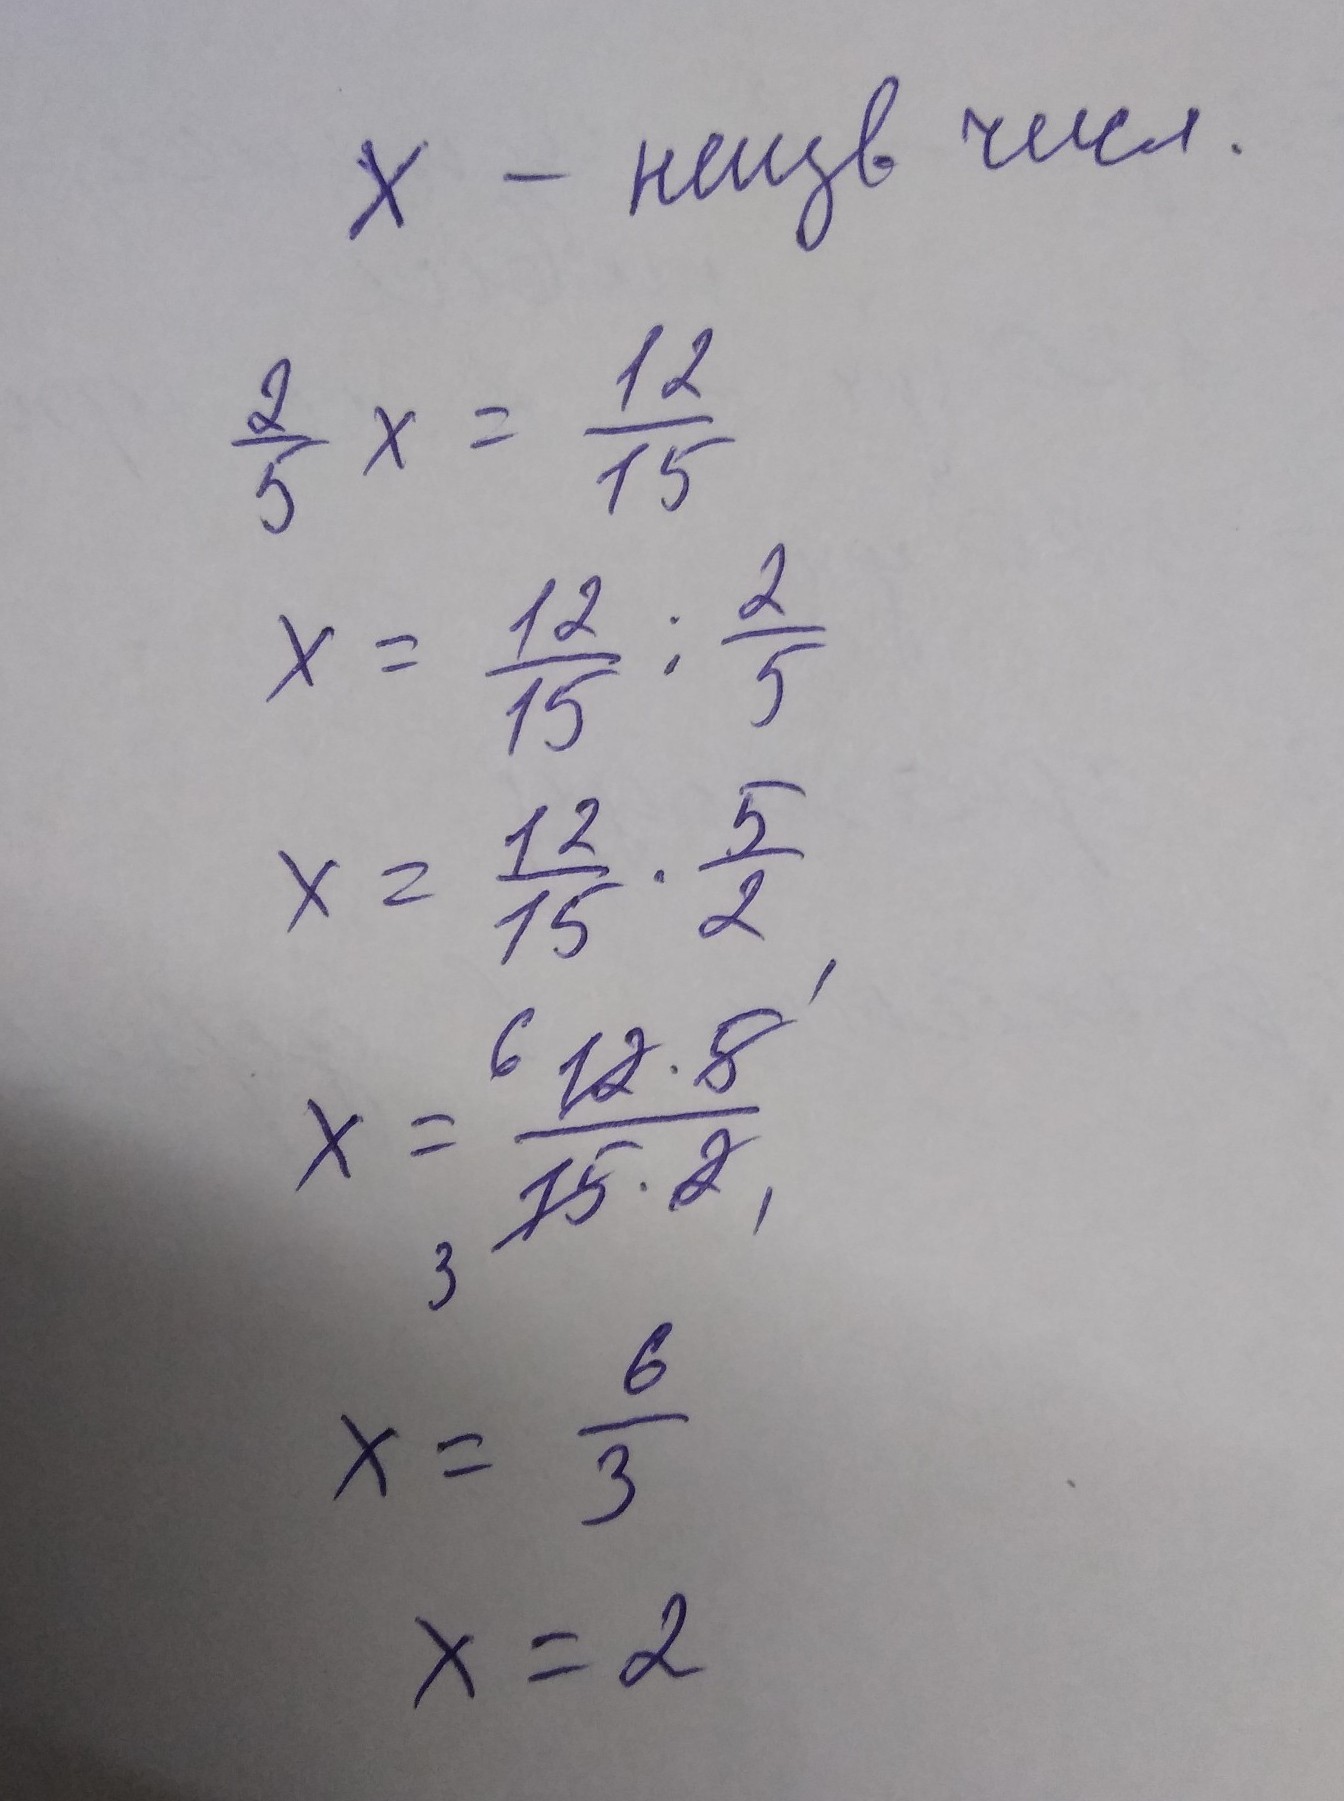 x - неизв числ.
2/5 x = 12/15
x = 12/15 : 2/5
x = 12/15 · 5/2
x = 6 12 · 5 1 / 3 15 · 2 1
x = 6/3
x = 2